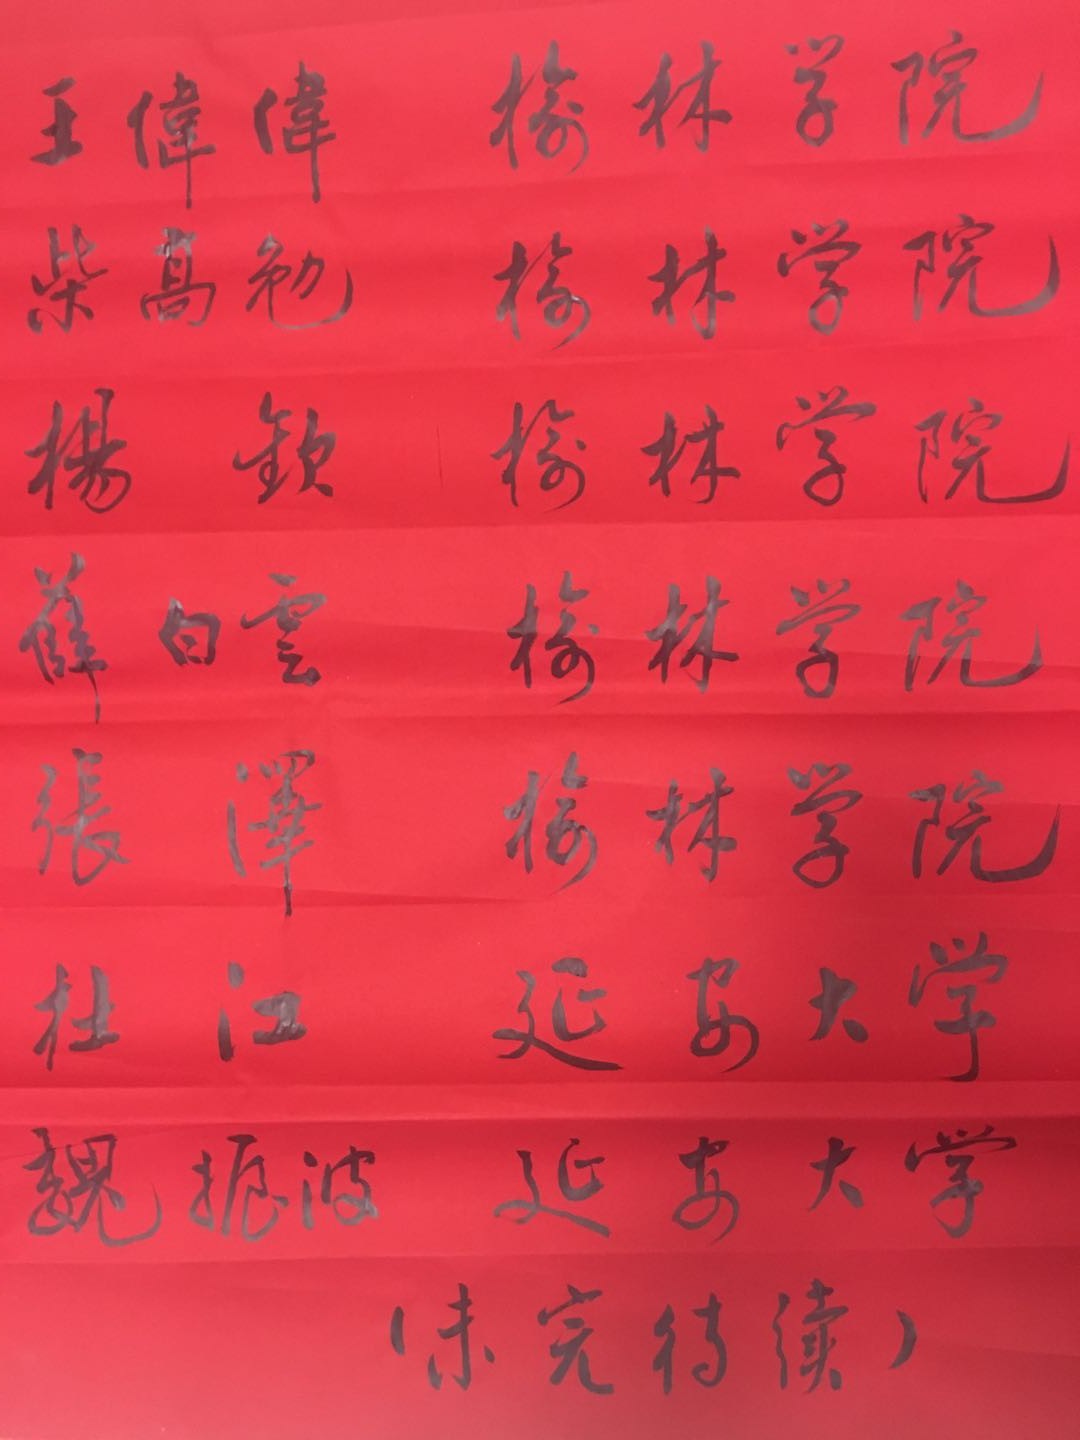 王偉偉 榆林学院
柴髙勉 榆林学院
楊欽 榆林学院
薛白雲 榆林学院
張澤 榆林学院
杜江 延安大学
魏振波 延安大学
(未完待续)